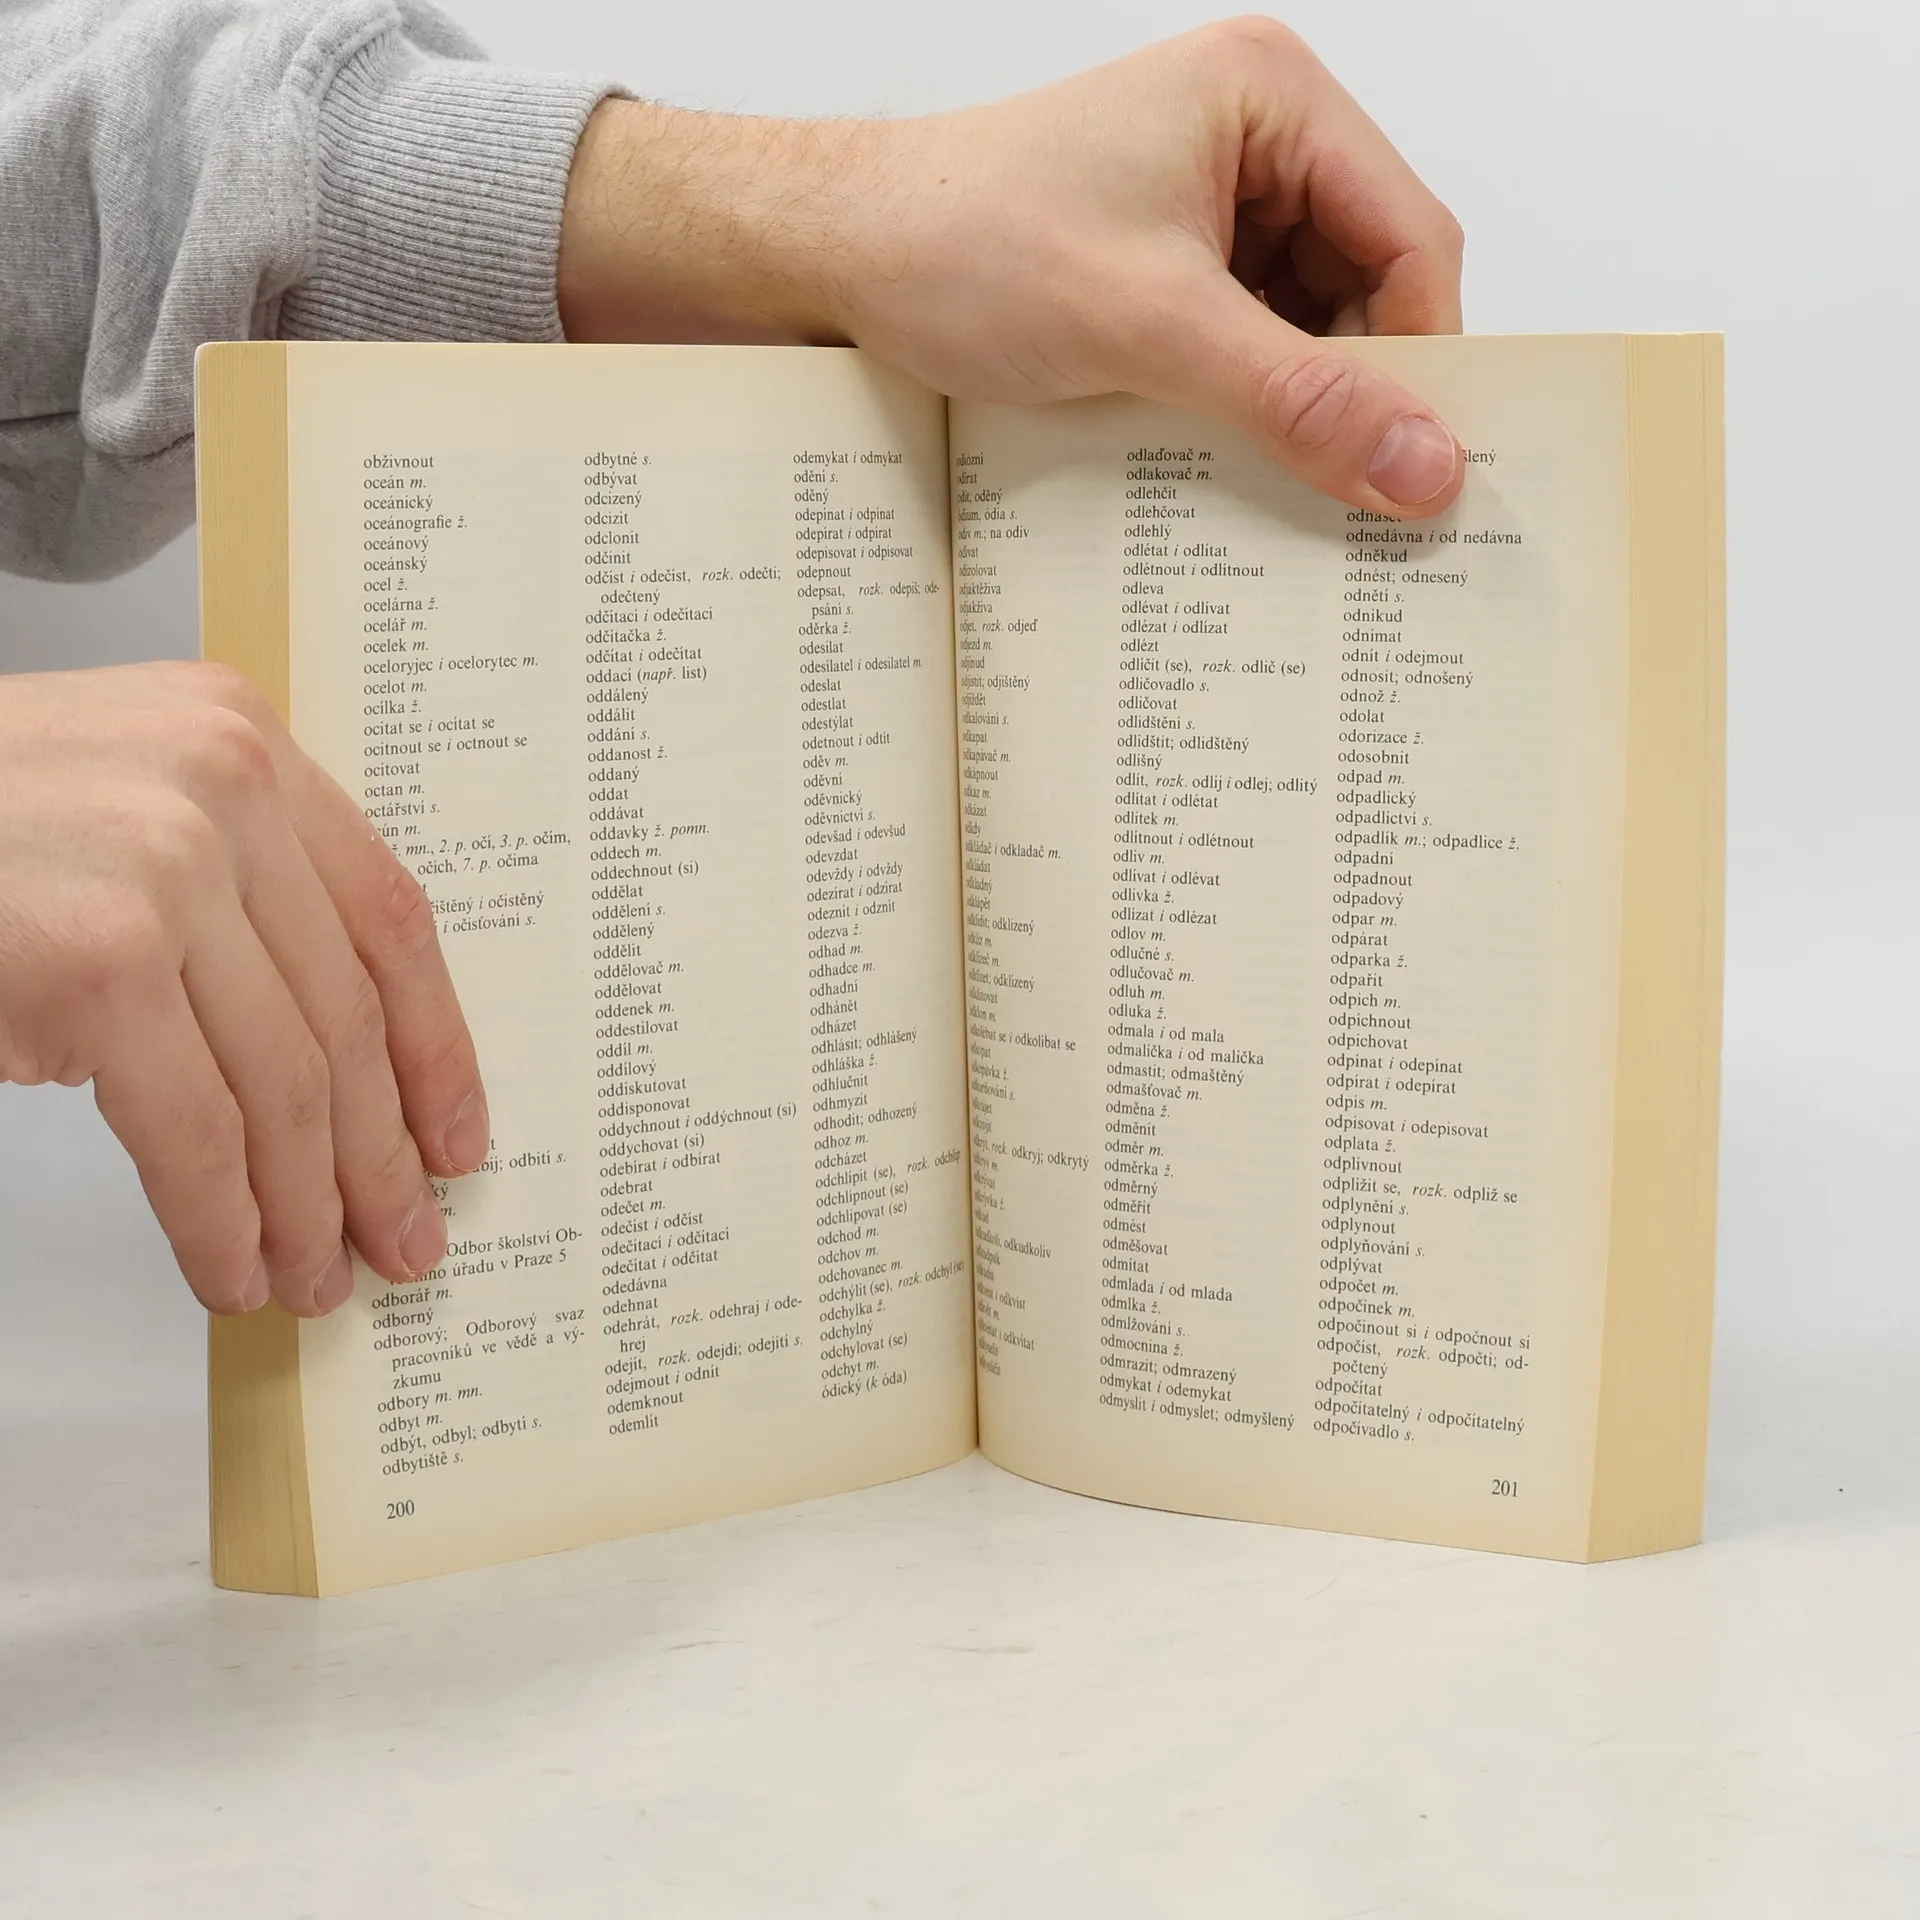 obživnout
oceán m.
oceánický
oceánografie ž.
oceánový
oceánský
ocel ž.
ocelárna ž.
ocelář m.
ocelek m.
oceloryjec i ocelorytec m.
ocelot m.
ocílka ž.
ocitat se i ocítat se
ocitnout se i octnout se
ocitovat
octan m.
octářství s.
ž. mn., 2. p. očí, 3. p. očím,
očích, 7. p. očima
i očistěný
i očisťování s.
odbití s.
m.
Odbor školství Ob-
úřadu v Praze 5
odborář m.
odborný
odborový; Odborový svaz
pracovníků ve vědě a vý-
zkumu
odbory m. mn.
odbyt m.
odbýt, odbyl; odbytí s.
odbytiště s.
odbytné s.
odbývat
odcizený
odcizit
odclonit
odčinit
odčíst i odečíst, rozk. odečti;
odečtený
odčítací i odečítací
odčítačka ž.
odčítat i odečítat
oddací (např. list)
oddálený
oddálit
oddání s.
oddanost ž.
oddaný
oddat
oddávat
oddavky ž. pomn.
oddech m.
oddechnout (si)
oddělat
oddělení s.
oddělený
oddělit
oddělovač m.
oddělovat
oddenek m.
oddestilovat
oddíl m.
oddílový
oddiskutovat
oddisponovat
oddychnout i oddýchnout (si)
oddychovat (si)
odebírat i odbírat
odebrat
odečet m.
odečíst i odčíst
odečítací i odčítací
odečítat i odčítat
odedávna
odehnat
odehrát, rozk. odehraj i ode-
hrej
odejít, rozk. odejdi; odejití s.
odejmout i odnít
odemknout
odemlít
odemykat i odmykat
odění s.
oděný
odepínat i odpínat
odepírat i odpírat
odepisovat i odpisovat
odepnout
odepsat, rozk. odepiš; ode-
psání s.
oděrka ž.
odesílat
odesílatel i odesilatel m.
odeslat
odestlat
odestýlat
odetnout i odtít
oděv m.
oděvní
oděvnický
oděvnictví s.
odevšad i odevšud
odevzdat
odevždy i odvždy
odezírat i odzírat
odeznít i odznít
odezva ž.
odhad m.
odhadce m.
odhadní
odhánět
odházet
odhlásit; odhlášený
odhláška ž.
odhlučnit
odhmyzit
odhodit; odhozený
odhoz m.
odcházet
odchlípit (se), rozk. odchlip
odchlípnout (se)
odchlipovat (se)
odchod m.
odchov m.
odchovanec m.
odchýlit (se), rozk. odchyl (se)
odchylka ž.
odchylný
odchylovat (se)
odchyt m.
ódický (k óda)
200
odiózní
odírat
odít; oděný
ódium, ódia s.
odiv m.; na odiv
odívat
odizolovat
odjaktěživa
odjakživa
odjet, rozk. odjeď
odjezd m.
odjinud
odjistit; odjištěný
odjíždět
odkalování s.
odkapat
odkapávač m.
odkápnout
odkaz m.
odkázat
odkdy
odkládač i odkladač m.
odkládat
odkladný
odklápět
odklidit; odklizený
odkliz m.
odklízeč m.
odklízet; odklízený
odklizovat
odklon m.
odkolébat se i odkolíbat se
odkopat
odkopávka ž.
odkrajet
odkrojit
odkrýt, rozk. odkryj; odkrytý
odkryv m.
odkrývat
odkrývka ž.
odkud
odkudkoli, odkudkoliv
odkudpak
odkvést i odkvíst
odkvět m.
odkvétat i odkvítat
odlaďovač m.
odlakovač m.
odlehčit
odlehčovat
odlehlý
odlétat i odlítat
odlétnout i odlítnout
odleva
odlévat i odlívat
odlézat i odlízat
odlézt
odlíčit (se), rozk. odlič (se)
odličovadlo s.
odličovat
odlidštění s.
odlidštit; odlidštěný
odlišný
odlít, rozk. odlij i odlej; odlitý
odlítat i odlétat
odlitek m.
odlítnout i odlétnout
odliv m.
odlívat i odlévat
odlivka ž.
odlízat i odlézat
odlov m.
odlučné s.
odlučovač m.
odluh m.
odluka ž.
odmala i od mala
odmalička i od malička
odmastit; odmaštěný
odmašťovač m.
odměna ž.
odměnit
odměr m.
odměrka ž.
odměrný
odměřit
odmést
odměšovat
odmítat
odmlada i od mlada
odmlka ž.
odmlžování s.
odmocnina ž.
odmrazit; odmrazený
odmykat i odemykat
odmyslit i odmyslet; odmyšlený
šlený
odnášet
odnedávna i od nedávna
odněkud
odnést; odnesený
odnětí s.
odnikud
odnímat
odnít i odejmout
odnosit; odnošený
odnož ž.
odolat
odorizace ž.
odosobnit
odpad m.
odpadlický
odpadlictví s.
odpadlík m.; odpadlice ž.
odpadní
odpadnout
odpadový
odpar m.
odpárat
odparka ž.
odpařit
odpich m.
odpíchnout
odpichovat
odpínat i odepínat
odpírat i odepírat
odpis m.
odpisovat i odepisovat
odplata ž.
odplivnout
odplížit se, rozk. odpliž se
odplynění s.
odplynout
odplyňování s.
odplývat
odpočet m.
odpočinek m.
odpočinout si i odpočnout si
odpočíst, rozk. odpočti; od-
počtený
odpočítat
odpočitatelný i odpočítatelný
odpočívadlo s.
201